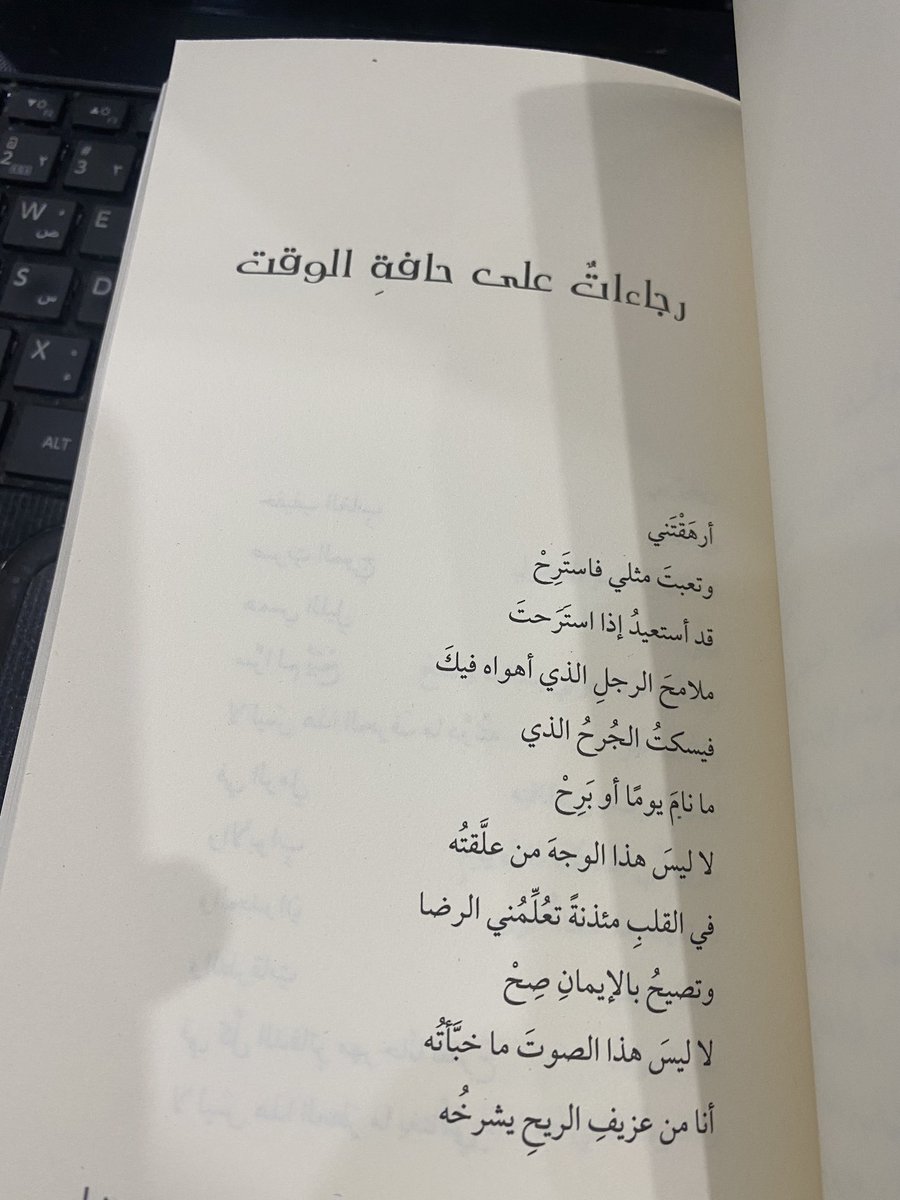 رجاءاتٌ على حافةِ الوقت
أرهَقْتَني
وتعبتَ مثلي فاستَرِحْ
قد أستعيدُ إذا استَرَحتَ
ملامحَ الرجلِ الذي أهواه فيكَ
فيسكتُ الجُرحُ الذي
ما نامَ يومًا أو بَرِحْ
لا ليسَ هذا الوجهَ من علَّقتُه
في القلبِ مئذنةً تعُلِّمُني الرضا
وتصيحُ بالإيمانِ صِحْ
لا ليسَ هذا الصوتَ ما خبَّأتُه
أنا من عزيفِ الريحِ يشرخُه
W ص
E
S س
D
X ء
ALT
2 ٢
# 3 ٣